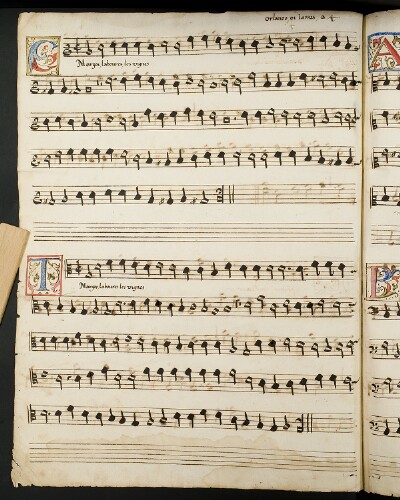 orlando di lassus, a 4
C
Margot labourez les vignes
T
Margot labourez les vignes